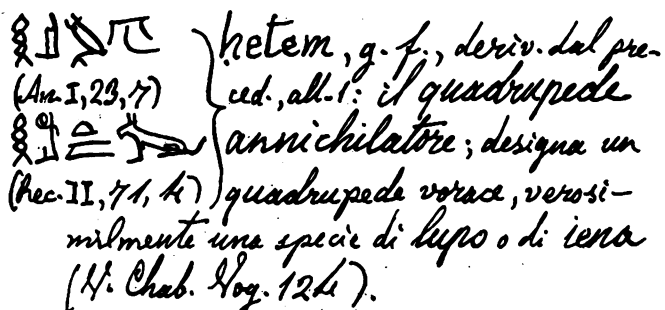 𓎛𓃀𓅓𓄛 hetem, g. f., deriv. dal pre-
(An. I, 23, 7) ced., all. 1: il quadrupede
annichilatore; designa un
(Rec. II, 71, 4) quadrupede vorace, verosi-
milmente una specie di lupo o di iena
(V. Chab. Voy. 124).